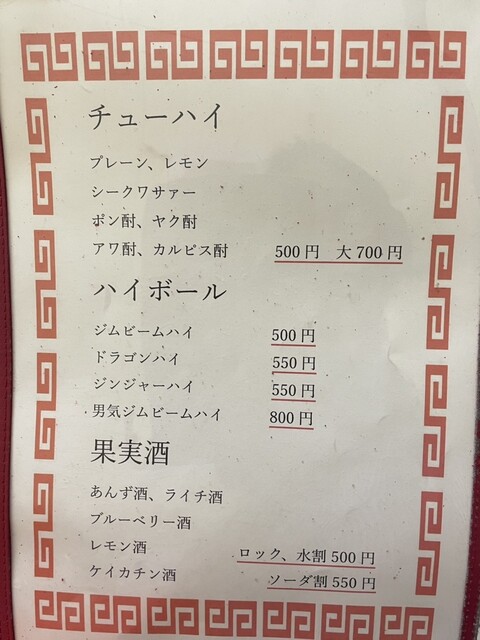 チューハイ
プレーン、レモン
シークワサァー
ポン酎、ヤク酎
アワ酎、カルピス酎 500円 大700円
ハイボール
ジムビームハイ 500円
ドラゴンハイ 550円
ジンジャーハイ 550円
男気ジムビームハイ 800円
果実酒
あんず酒、ライチ酒
ブルーベリー酒
レモン酒 ロック、水割500円
ケイカチン酒 ソーダ割550円